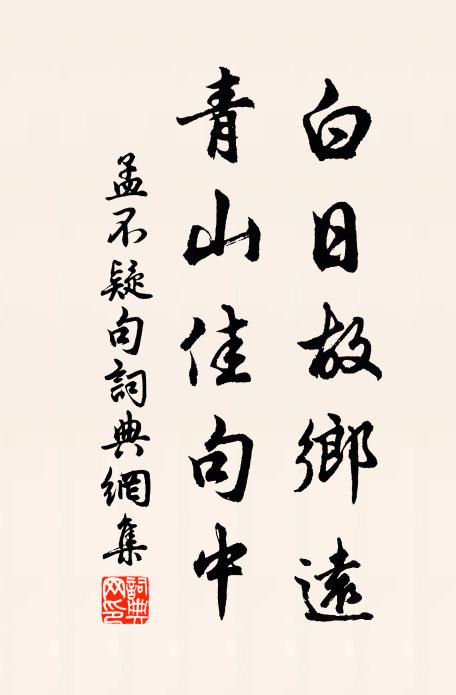 白日故鄉遠
青山佳句中
孟不疑句詞典網集
詞典
网印